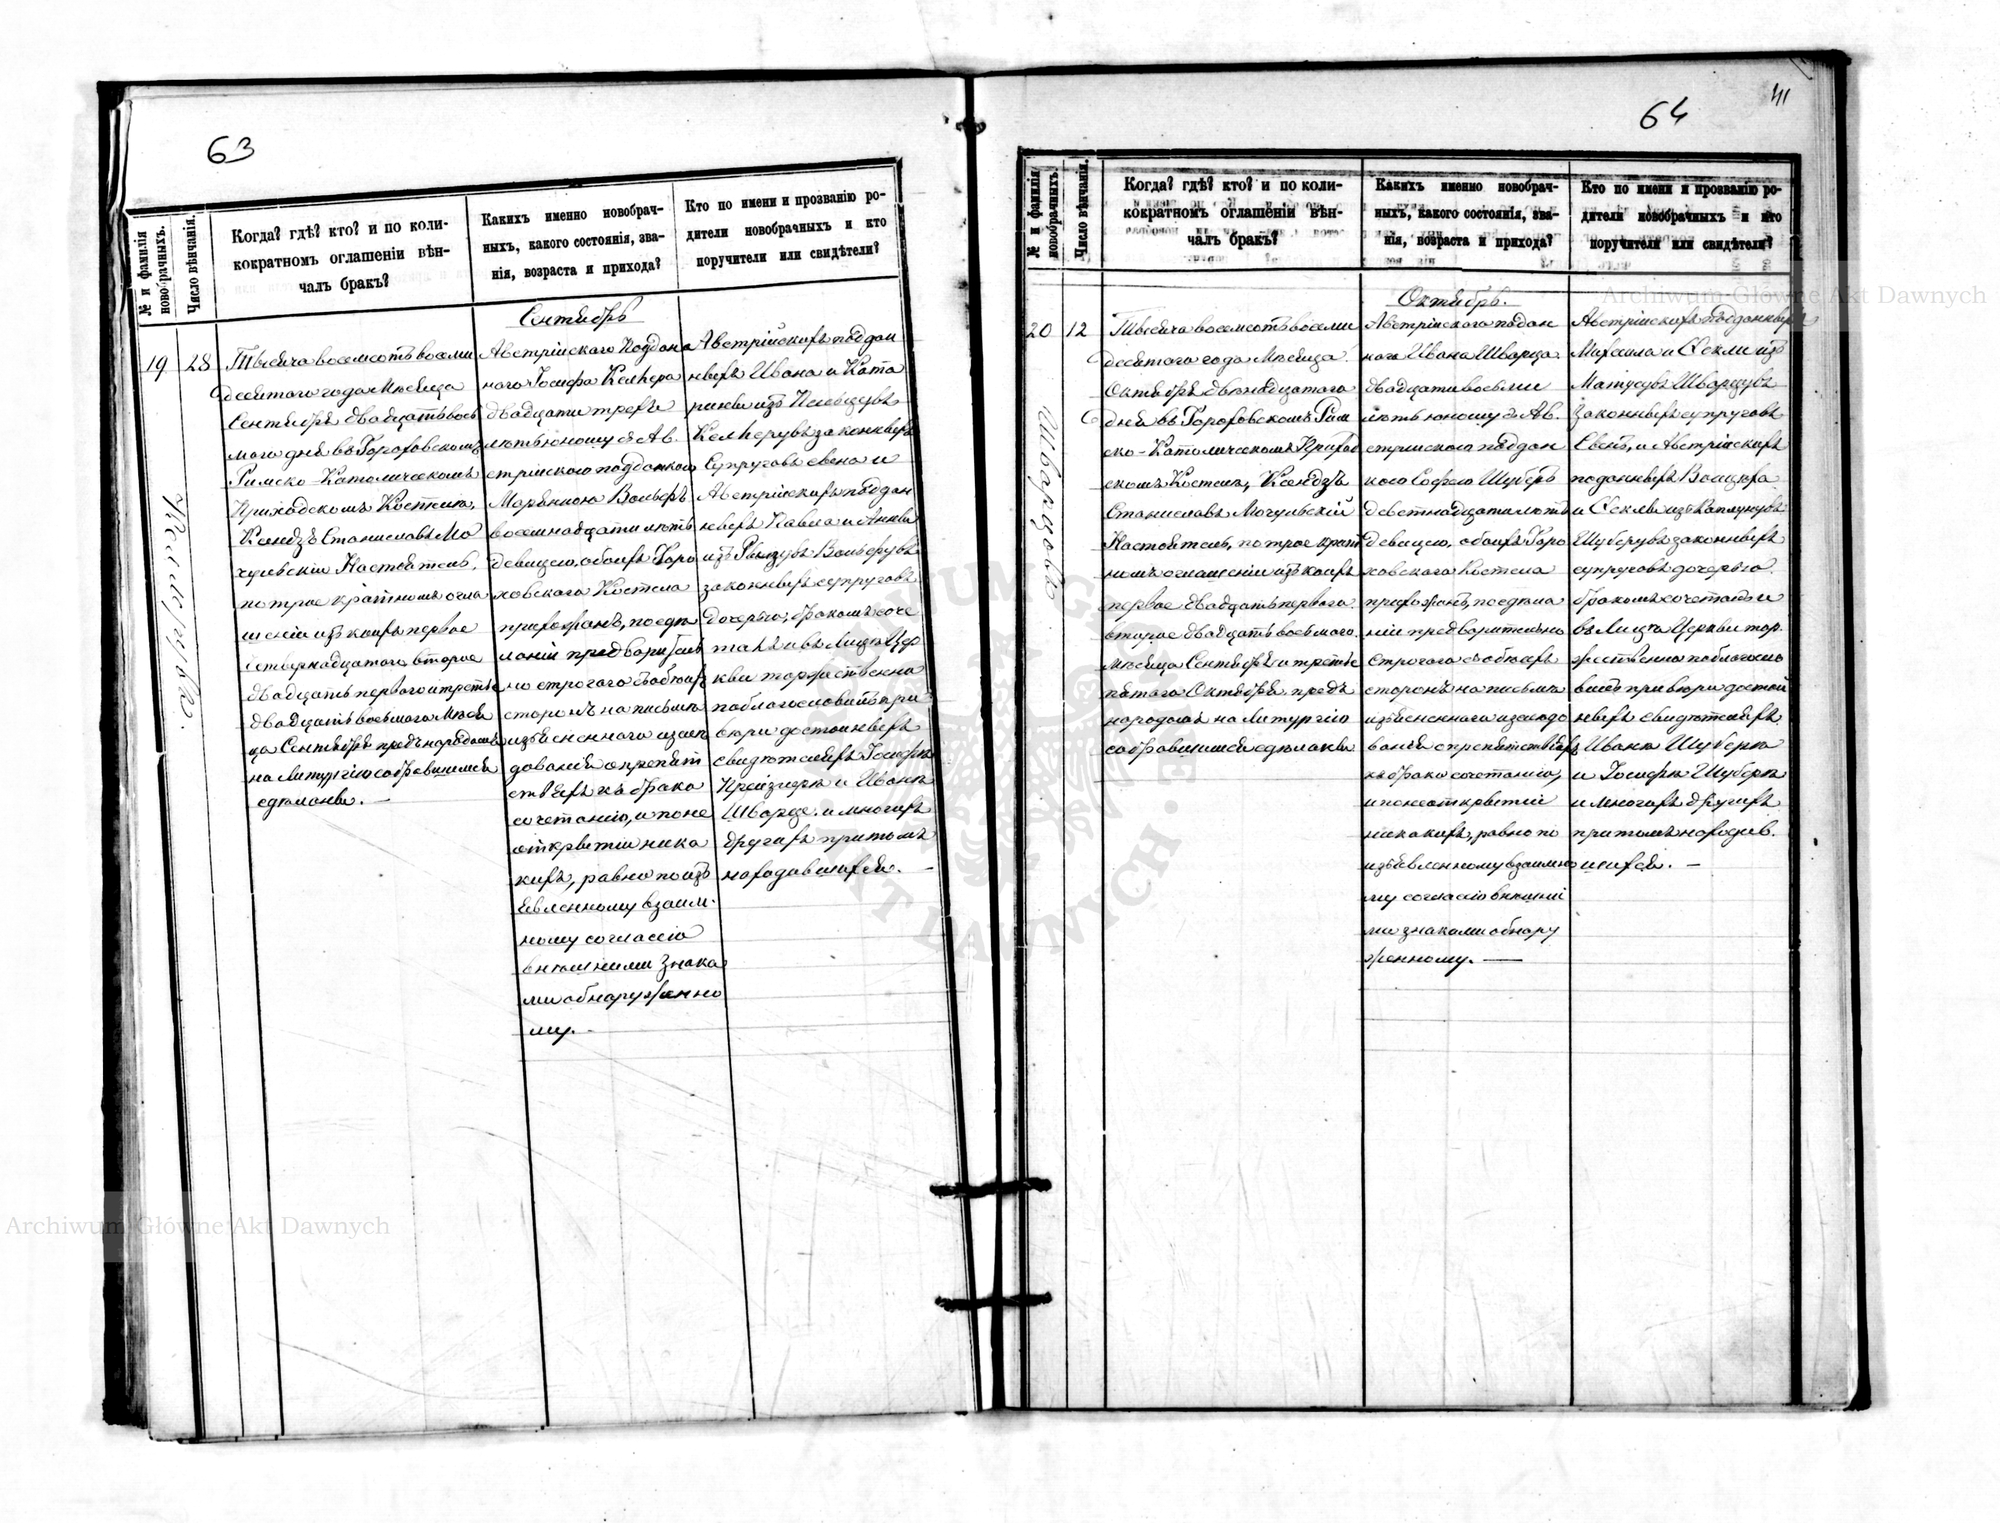 63
№ и фамилія новобрачныхъ.
Число вѣнчанія.
Когда? гдѣ? кто? и по коли-
кократномъ оглашеніи вѣн-
чалъ бракъ?
Какихъ именно новобрач-
ныхъ, какого состоянія, зва-
нія, возраста и прихода?
Кто по имени и прозванію ро-
дители новобрачныхъ и кто
поручители или свидѣтели?
Сентябрь
19
28
Тысяча восемсотъ восьми
десятаго года Мѣсяца
Сентября двадцать вось
маго дня въ Гороховскомъ
Римско-Католическомъ
Приходскомъ Костелѣ,
Ксендзъ Станиславъ Мо
чульскій Настоятель,
по трое кратномъ огла
шеніи изъ коихъ первое
четвернадцатаго второе
двадцать перваго и третье
двадцать восьмаго Мѣся
ца Сентября предъ народомъ
на Литургію собравшимся
сдѣланы.
Австрійскаго Поддан
наго Іосифа Келнера
двадцати трехъ
лѣтъ юношу съ Ав.
стрійскою подданною
Марьянною Вольфъ
восемнадцати лѣтъ
девицею, обоихъ Горо
ховскаго Костела
прихожанъ, по сдѣ
ланіи предварителъ
но строгаго съ обоихъ
сторонъ на письмѣ
изъясненнаго изслѣ
дованія о препят
ствіяхъ къ брако
сочетанію, и по не
открытіи ника
кихъ, равно по изъ
явленному взаим-
ному согласію
внѣшними знака
ми обнаруженно
му.
Австрійскихъ поддан
ныхъ Ивана и Ката
рины изъ
Келнеровъ законныхъ
Супруговъ сына и
Австрійскихъ поддан
ныхъ Павла и Анны
изъ Вольфувъ
законныхъ супруговъ
дочерью, бракомъ соче
талъ и въ Лицѣ Цер
кви торжественно
поблагословилъ при
вѣри достойныхъ
свидѣтеляхъ Іосифѣ
и Иванѣ
Шварце и многихъ
другихъ притомъ
находившихся.
64
41
№ и фамилія новобрачныхъ.
Число вѣнчанія.
Когда? гдѣ? кто? и по коли-
кократномъ оглашеніи вѣн-
чалъ бракъ?
Какихъ именно новобрач-
ныхъ, какого состоянія, зва-
нія, возраста и прихода?
Кто по имени и прозванію ро-
дители новобрачныхъ и кто
поручители или свидѣтели?
Октябрь.
20
12
Шварцовъ
Тысяча восемсотъ восьми
десятаго года Мѣсяца
Октября двѣнадцатаго
дня въ Гороховскомъ Рим
ско-Католическомъ Приход
скомъ Костелѣ, Ксендзъ
Станиславъ Мочульскій
Настоятель, по трое крат
номъ оглашеніи изъ коихъ
первое двадцать перваго
второе двадцать восьмаго
мѣсяца Сентября и третье
пятаго Октября предъ
народомъ на Литургію
собравшимся сдѣланы
Австрійскаго поддан
наго Ивана Шварца
двадцати восьми
лѣтъ юношу съ Ав.
стрійскою поддан
ною Софею Шуберъ
девятнадцати лѣтъ
девицею, обоихъ Горо
ховскаго Костела
прихожанъ, по сдѣла
ніи предварительно
строгаго съ обоихъ
сторонъ на письмѣ
изъясненнаго изслѣдо
ванія о препятствіяхъ
къ брако сочетанію,
и по не открытіи
никакихъ, равно по
изъявленному взаимно
му согласію внѣшни
ми знаками обнару
женному.
Австрійскихъ подданныхъ
Михаила и Феклы изъ
Матусувъ Шварцувъ
законныхъ супруговъ
сынъ, и Австрійскихъ
подданныхъ Войцѣха
и Феклы изъ
Шуберувъ законныхъ
супруговъ дочерью
бракомъ сочеталъ и
въ Лицѣ Церкви тор-
жественно поблагосло
вилъ при вѣри достой
ныхъ свидѣтеляхъ
Иванѣ Шуберѣ
и Іосифѣ Шуберѣ
и многихъ другихъ
притомъ находив-
шихся.
Archiwum Główne Akt Dawnych
Archiwum Główne Akt Dawnych